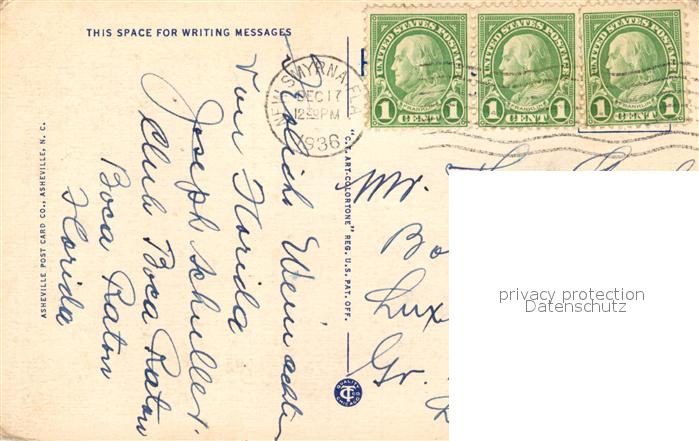 THIS SPACE FOR WRITING MESSAGES
Fröhliche Weinachten
von Florida
Joseph Schuller.
Club Boca Raton
Boca Raton
Florida
ASHEVILLE POST CARD CO., ASHEVILLE, N. C.
"C.T. ART-COLORTONE" REG. U.S. PAT. OFF.
QUALITY
CT
CHICAGO
NEW SMYRNA, FLA.
DEC 17
12 30 PM
1936
UNITED STATES POSTAGE
FRANKLIN
1 CENT 1
UNITED STATES POSTAGE
FRANKLIN
1 CENT 1
UNITED STATES POSTAGE
FRANKLIN
1 CENT 1
Mr.
Bo
Lux
Gr.
privacy protection
Datenschutz